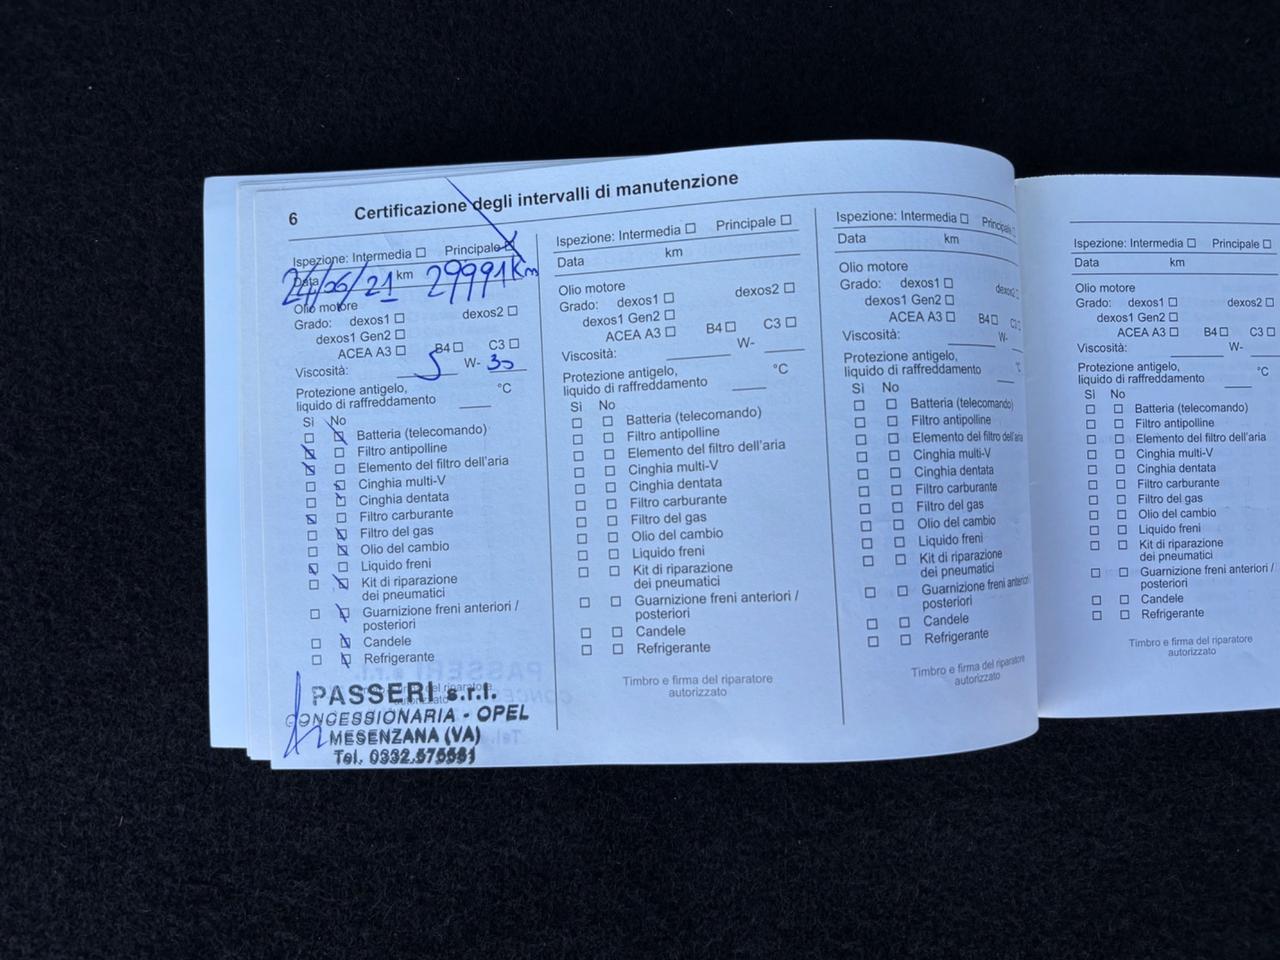 6 Certificazione degli intervalli di manutenzione
Ispezione: Intermedia ☐ Principale ☐
Data 24/06/21 km 29991 Km
Olio motore
Grado: dexos1 ☐ dexos2 ☐
dexos1 Gen2 ☐
ACEA A3 ☐ B4 ☐ C3 ☐
Viscosità: 5 W- 30
Protezione antigelo,
liquido di raffreddamento ____ °C
Sì No
Batteria (telecomando)
Filtro antipolline
Elemento del filtro dell'aria
Cinghia multi-V
Cinghia dentata
Filtro carburante
Filtro del gas
Olio del cambio
Liquido freni
Kit di riparazione
dei pneumatici
Guarnizione freni anteriori /
posteriori
Candele
Refrigerante
PASSERI s.r.l.
CONCESSIONARIA - OPEL
MESENZANA (VA)
Tel. 0332.575561
Ispezione: Intermedia ☐ Principale ☐
Data km
Olio motore
Grado: dexos1 ☐ dexos2 ☐
dexos1 Gen2 ☐
ACEA A3 ☐ B4 ☐ C3 ☐
Viscosità: ____ W- ____
Protezione antigelo,
liquido di raffreddamento ____ °C
Sì No
Batteria (telecomando)
Filtro antipolline
Elemento del filtro dell'aria
Cinghia multi-V
Cinghia dentata
Filtro carburante
Filtro del gas
Olio del cambio
Liquido freni
Kit di riparazione
dei pneumatici
Guarnizione freni anteriori /
posteriori
Candele
Refrigerante
Timbro e firma del riparatore
autorizzato
Ispezione: Intermedia ☐ Principale ☐
Data km
Olio motore
Grado: dexos1 ☐ dexos2
dexos1 Gen2 ☐
ACEA A3 ☐ B4 ☐ C3
Viscosità: ____ W-
Protezione antigelo,
liquido di raffreddamento ____
Sì No
Batteria (telecomando)
Filtro antipolline
Elemento del filtro dell'aria
Cinghia multi-V
Cinghia dentata
Filtro carburante
Filtro del gas
Olio del cambio
Liquido freni
Kit di riparazione
dei pneumatici
Guarnizione freni anteriori
posteriori
Candele
Refrigerante
Timbro e firma del riparatore
autorizzato
Ispezione: Intermedia ☐ Principale ☐
Data km
Olio motore
Grado: dexos1 ☐ dexos2 ☐
dexos1 Gen2 ☐
ACEA A3 ☐ B4 ☐ C3 ☐
Viscosità: ____ W- ____
Protezione antigelo,
liquido di raffreddamento ____ °C
Sì No
Batteria (telecomando)
Filtro antipolline
Elemento del filtro dell'aria
Cinghia multi-V
Cinghia dentata
Filtro carburante
Filtro del gas
Olio del cambio
Liquido freni
Kit di riparazione
dei pneumatici
Guarnizione freni anteriori /
posteriori
Candele
Refrigerante
Timbro e firma del riparatore
autorizzato